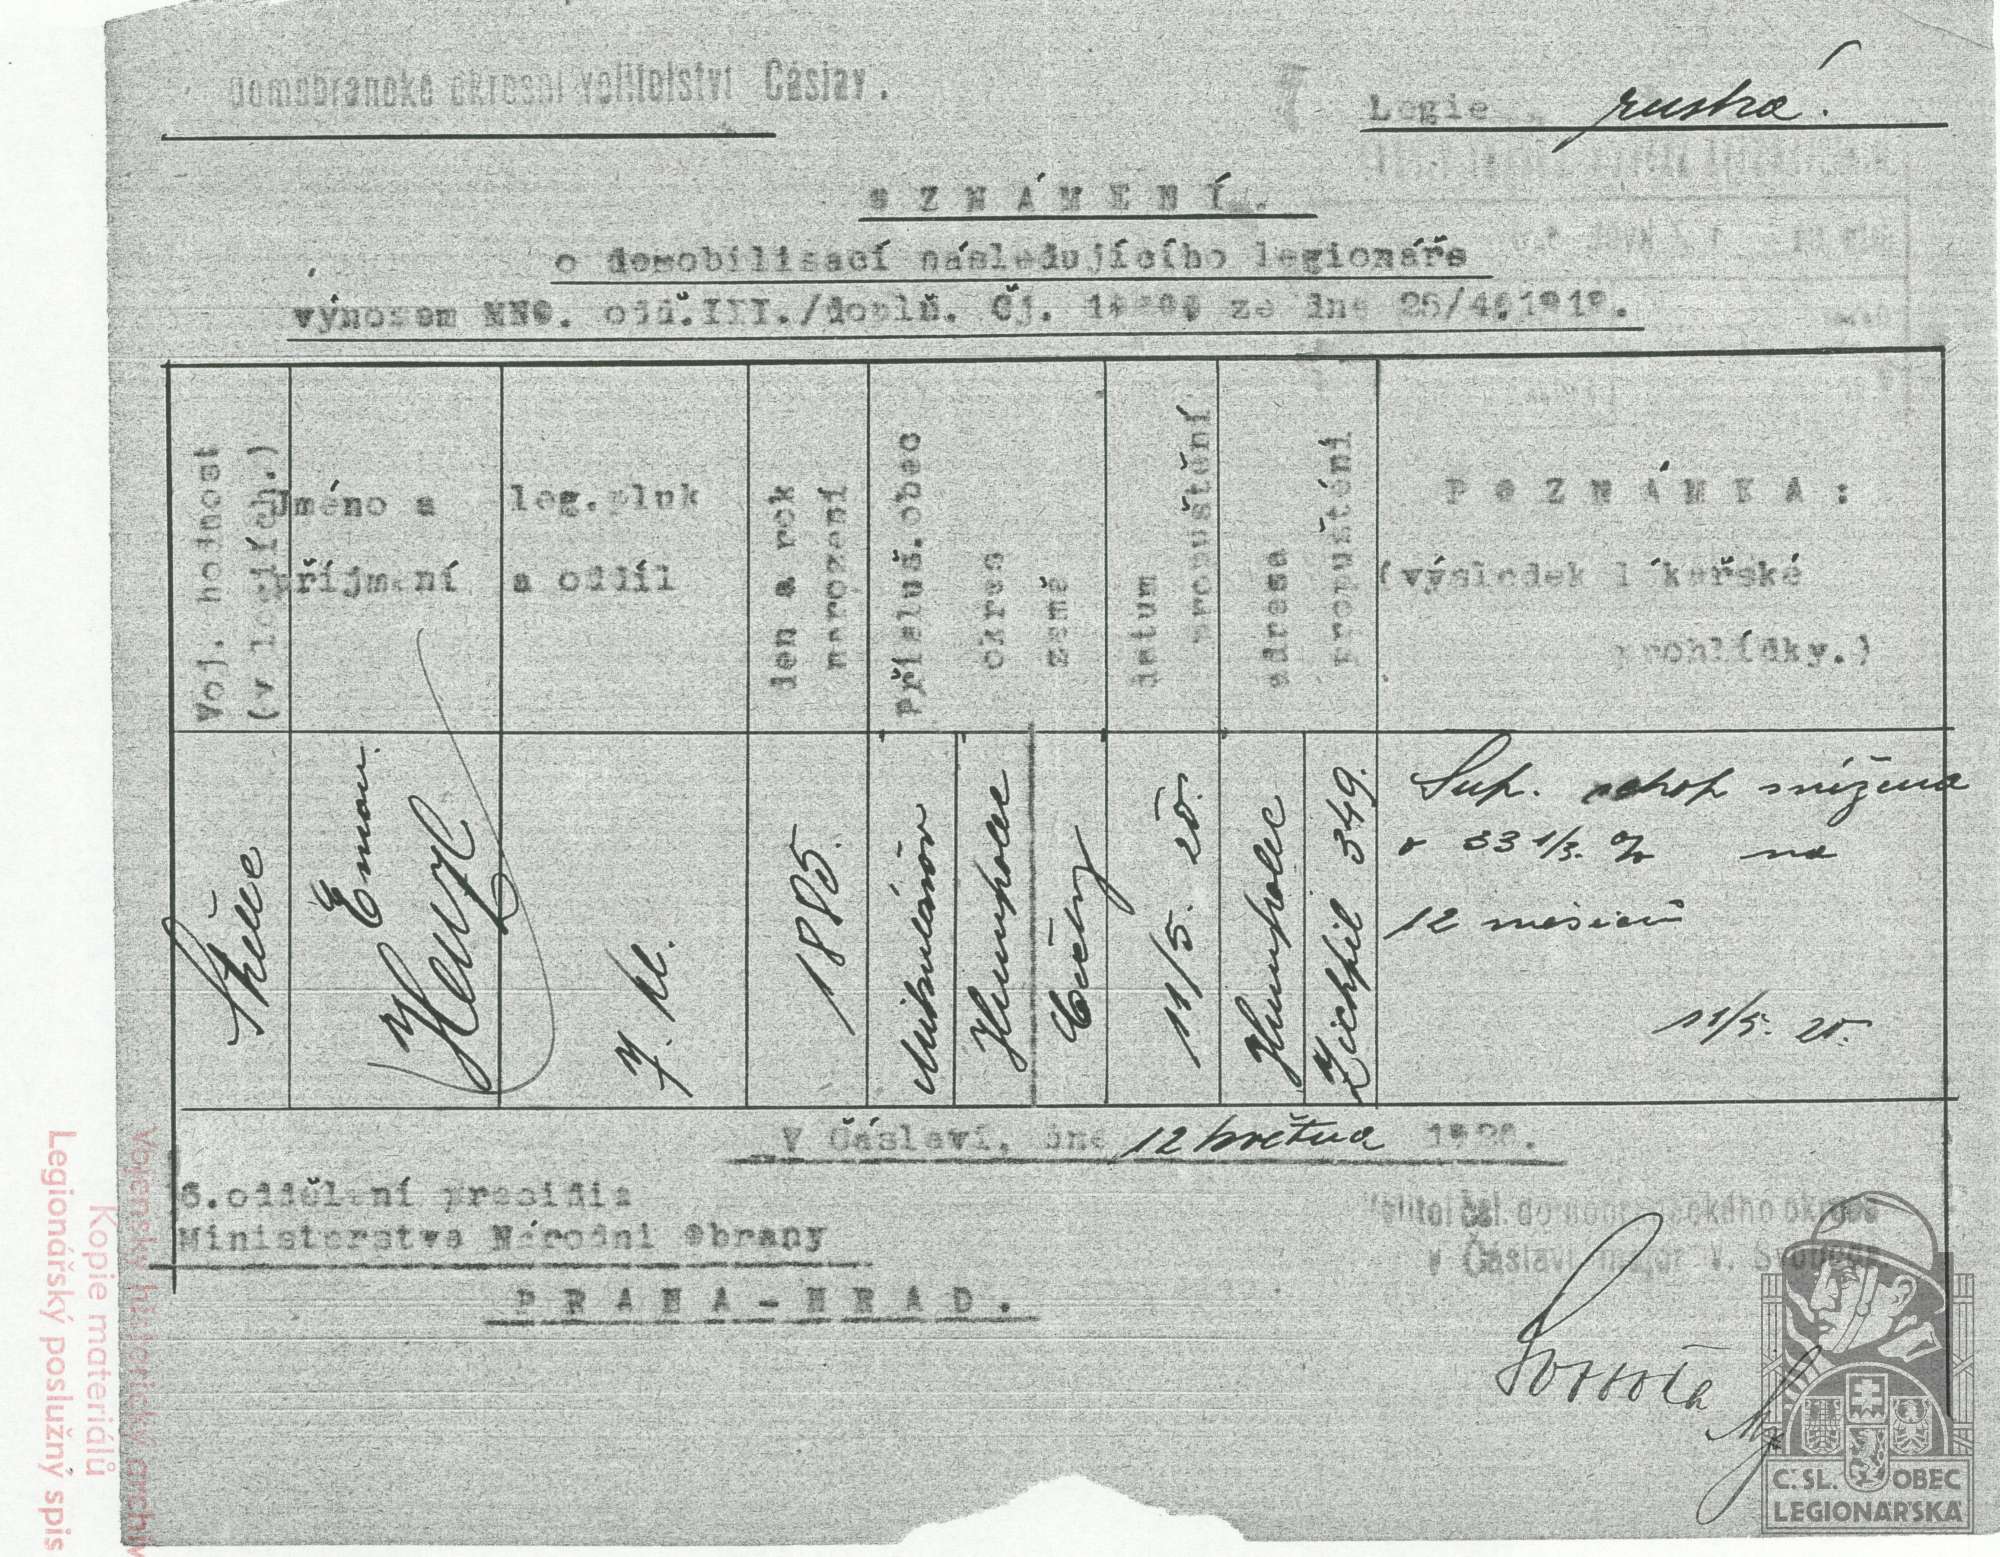 Domobranecké okresní velitelství Čáslav.
Legie ruská.
OZNÁMENÍ.
o demobilisací následujícího legionáře
výnosem MNO. odd.III./doplň. čj. ze dne 25/4.1919.
Voj. hodnost
(v legiích.)
Jméno a
příjmení
leg.pluk
a oddíl
den a rok
narození
Přísluš.obec
okres
země
datum
propuštění
adresa
propuštění
POZNÁMKA:
(výsledek lékařské
prohlídky.)
Eman.
Henzl
1885.
Mikulášov
Humpolec
Čechy
11/5. 20.
Humpolec
Zichpil 349.
Sup. schop snížena
o 33 1/3. % na
12 měsíců
11/5. 20.
V Čáslavi, dne 12 května 1920.
6.oddělení presidia
Ministerstva Národní Obrany
PRAHA-HRAD.
Velitel čsl. domobraneckého okresu
v Čáslavi major V. Svoboda.
Svoboda
Vojenský historický archiv
Kopie materiálů
Legionářský poslužný spis
Č.SL. OBEC
LEGIONÁŘSKÁ